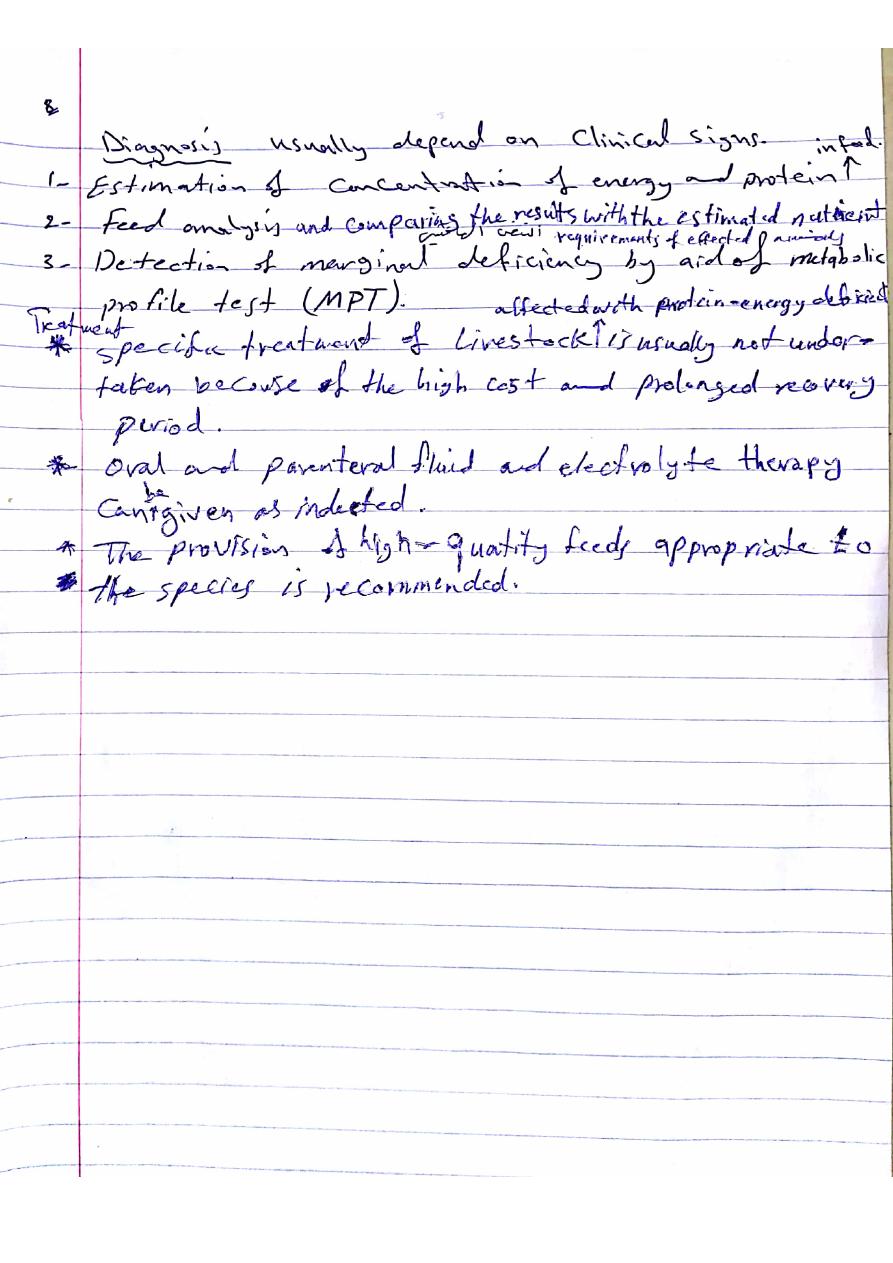 8
Diagnosis usually depend on clinical signs. in feed.
1- Estimation of concentration of energy and protein ↑
2- Feed analysis and comparing the results with the estimated nutrient
requirements of effected animals
3- Detection of marginal deficiency by aid of metabolic
profile test (MPT). affected with protein-energy deficient
Treatment
* specific treatment of livestock ↑ is usually not under-
taken because of the high cost and prolonged recovery
period.
* Oral and parenteral fluid and electrolyte therapy
be
Can ↑ given as indected.
* The provision of high-quatity feeds appropriate to
* the species is recommended.